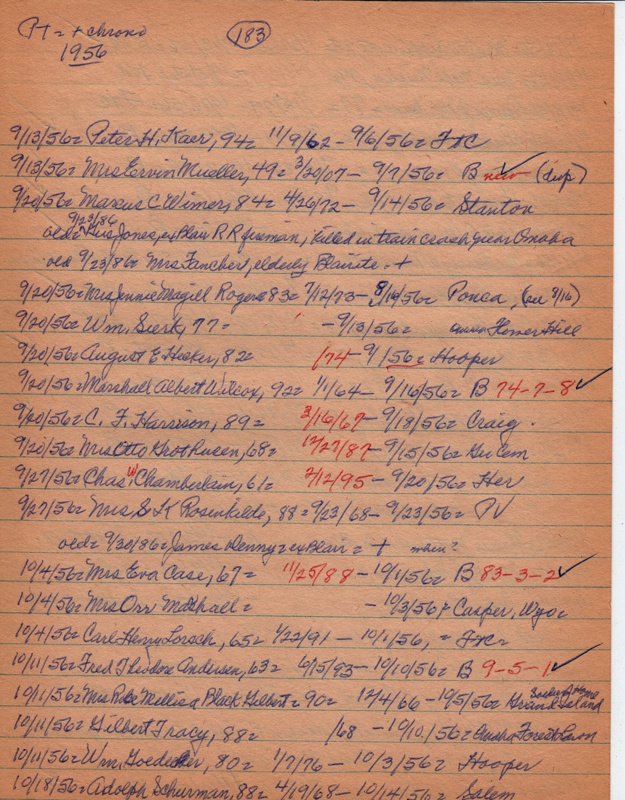 Pt = + chrono 183
1956
9/13/56= Peter H. Kaer, 94= 11/9/62 - 9/6/56= FtC
9/13/56= Mrs Ervin Mueller, 49= 3/20/07 - 9/7/56= B new (dup)
9/20/56= Marcus C Wimer, 84= 4/26/72 - 9/14/56= Stanton
9/23/86
old= Jones, ex Blair RR fireman, killed in train crash near Omaha
old 9/23/86= Mrs Fancher, elderly Blairite = +
9/20/56= Mrs Jennie Magill Rogers 83= 7/12/73 - 8/14/56= Ponca, (see 8/16)
9/20/56= Wm. Sierk, 77= - 9/13/56= Flower Hill
9/20/56= August E Hecker, 82= /74 - 9/1/56= Hooper
9/20/56= Marshall Albert Wilcox, 92= 1/1/64 - 9/16/56= B 74-7-8
9/20/56= C. F. Harrison, 89= 3/16/67 - 9/18/56= Craig.
9/20/56= Mrs Otto Grotrueen, 68= 12/27/87 - 9/15/56= Ger Cem
9/27/56= Chas W Chamberlain, 61= 2/12/95 - 9/20/56= Her
9/27/56= Mrs S K Rosenkilde, 88= 9/23/68 - 9/23/56= PV
old= 9/30/86= James Denny= ex Blair = + main?
10/4/56= Mrs Eva Case, 67= 11/25/88 - 10/1/56= B 83-3-2
10/4/56= Mrs Orr = - 10/3/56= Casper, Wyo=
10/4/56= Carl Henry Lorsch, 65= 1/22/91 - 10/1/56, = FtC=
10/11/56= Fred Theodore Andersen, 63= 6/15/93 - 10/10/56= B 9-5-1
10/11/56= Mrs Rose Millie a Black Gilbert= 90= 12/4/66 - 10/5/56= Grand Island
10/11/56= Gilbert Tracy, 88= /68 - 10/10/56= Omaha Forest Lawn
10/11/56= Wm. Goedeker, 80= 1/7/76 - 10/3/56= Hooper
10/18/56= Adolph Schurman, 88= 4/19/68 - 10/14/56= Salem